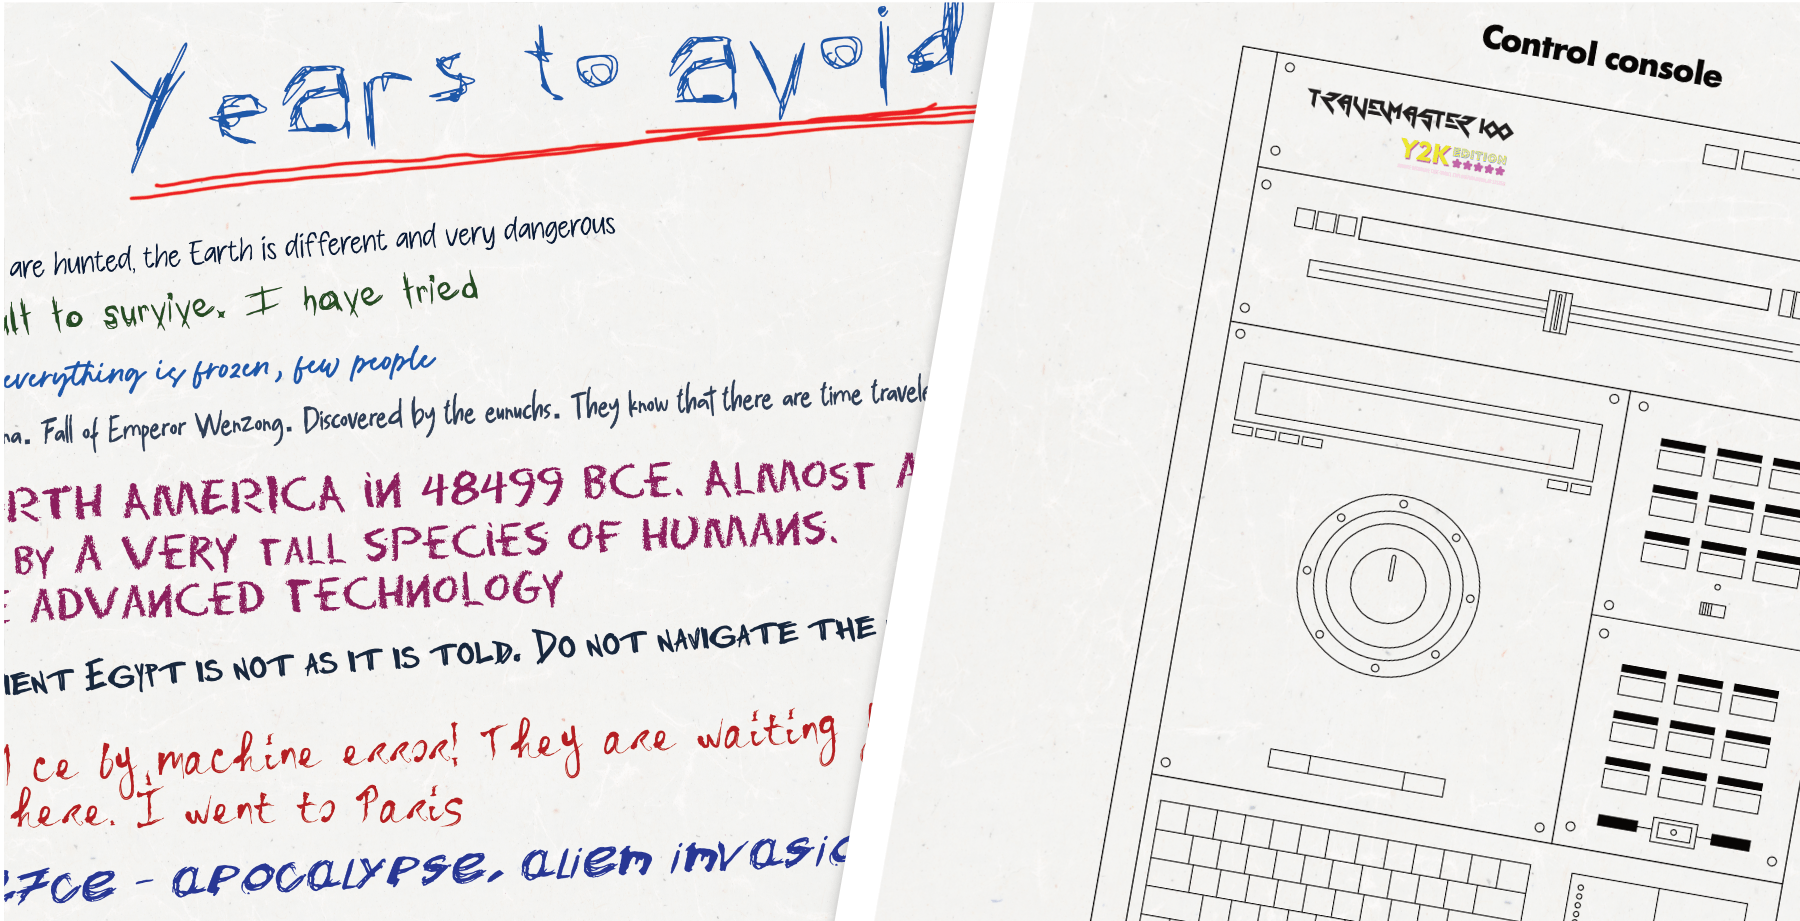 Years to avoid
are hunted, the Earth is different and very dangerous
to survive. I have tried
everything is frozen, few people
Fall of Emperor Wenzong. Discovered by the eunuchs. They know that there are time
AMERICA IN 48499 BCE. ALMOST
BY A VERY TALL SPECIES OF HUMANS.
ADVANCED TECHNOLOGY
EGYPT IS NOT AS IT IS TOLD. DO NOT NAVIGATE THE
ce by machine error! They are waiting
here. I went to Paris
7ce - apocalypse, alien
Control console
TRAVELMASTER 100
Y2K EDITION